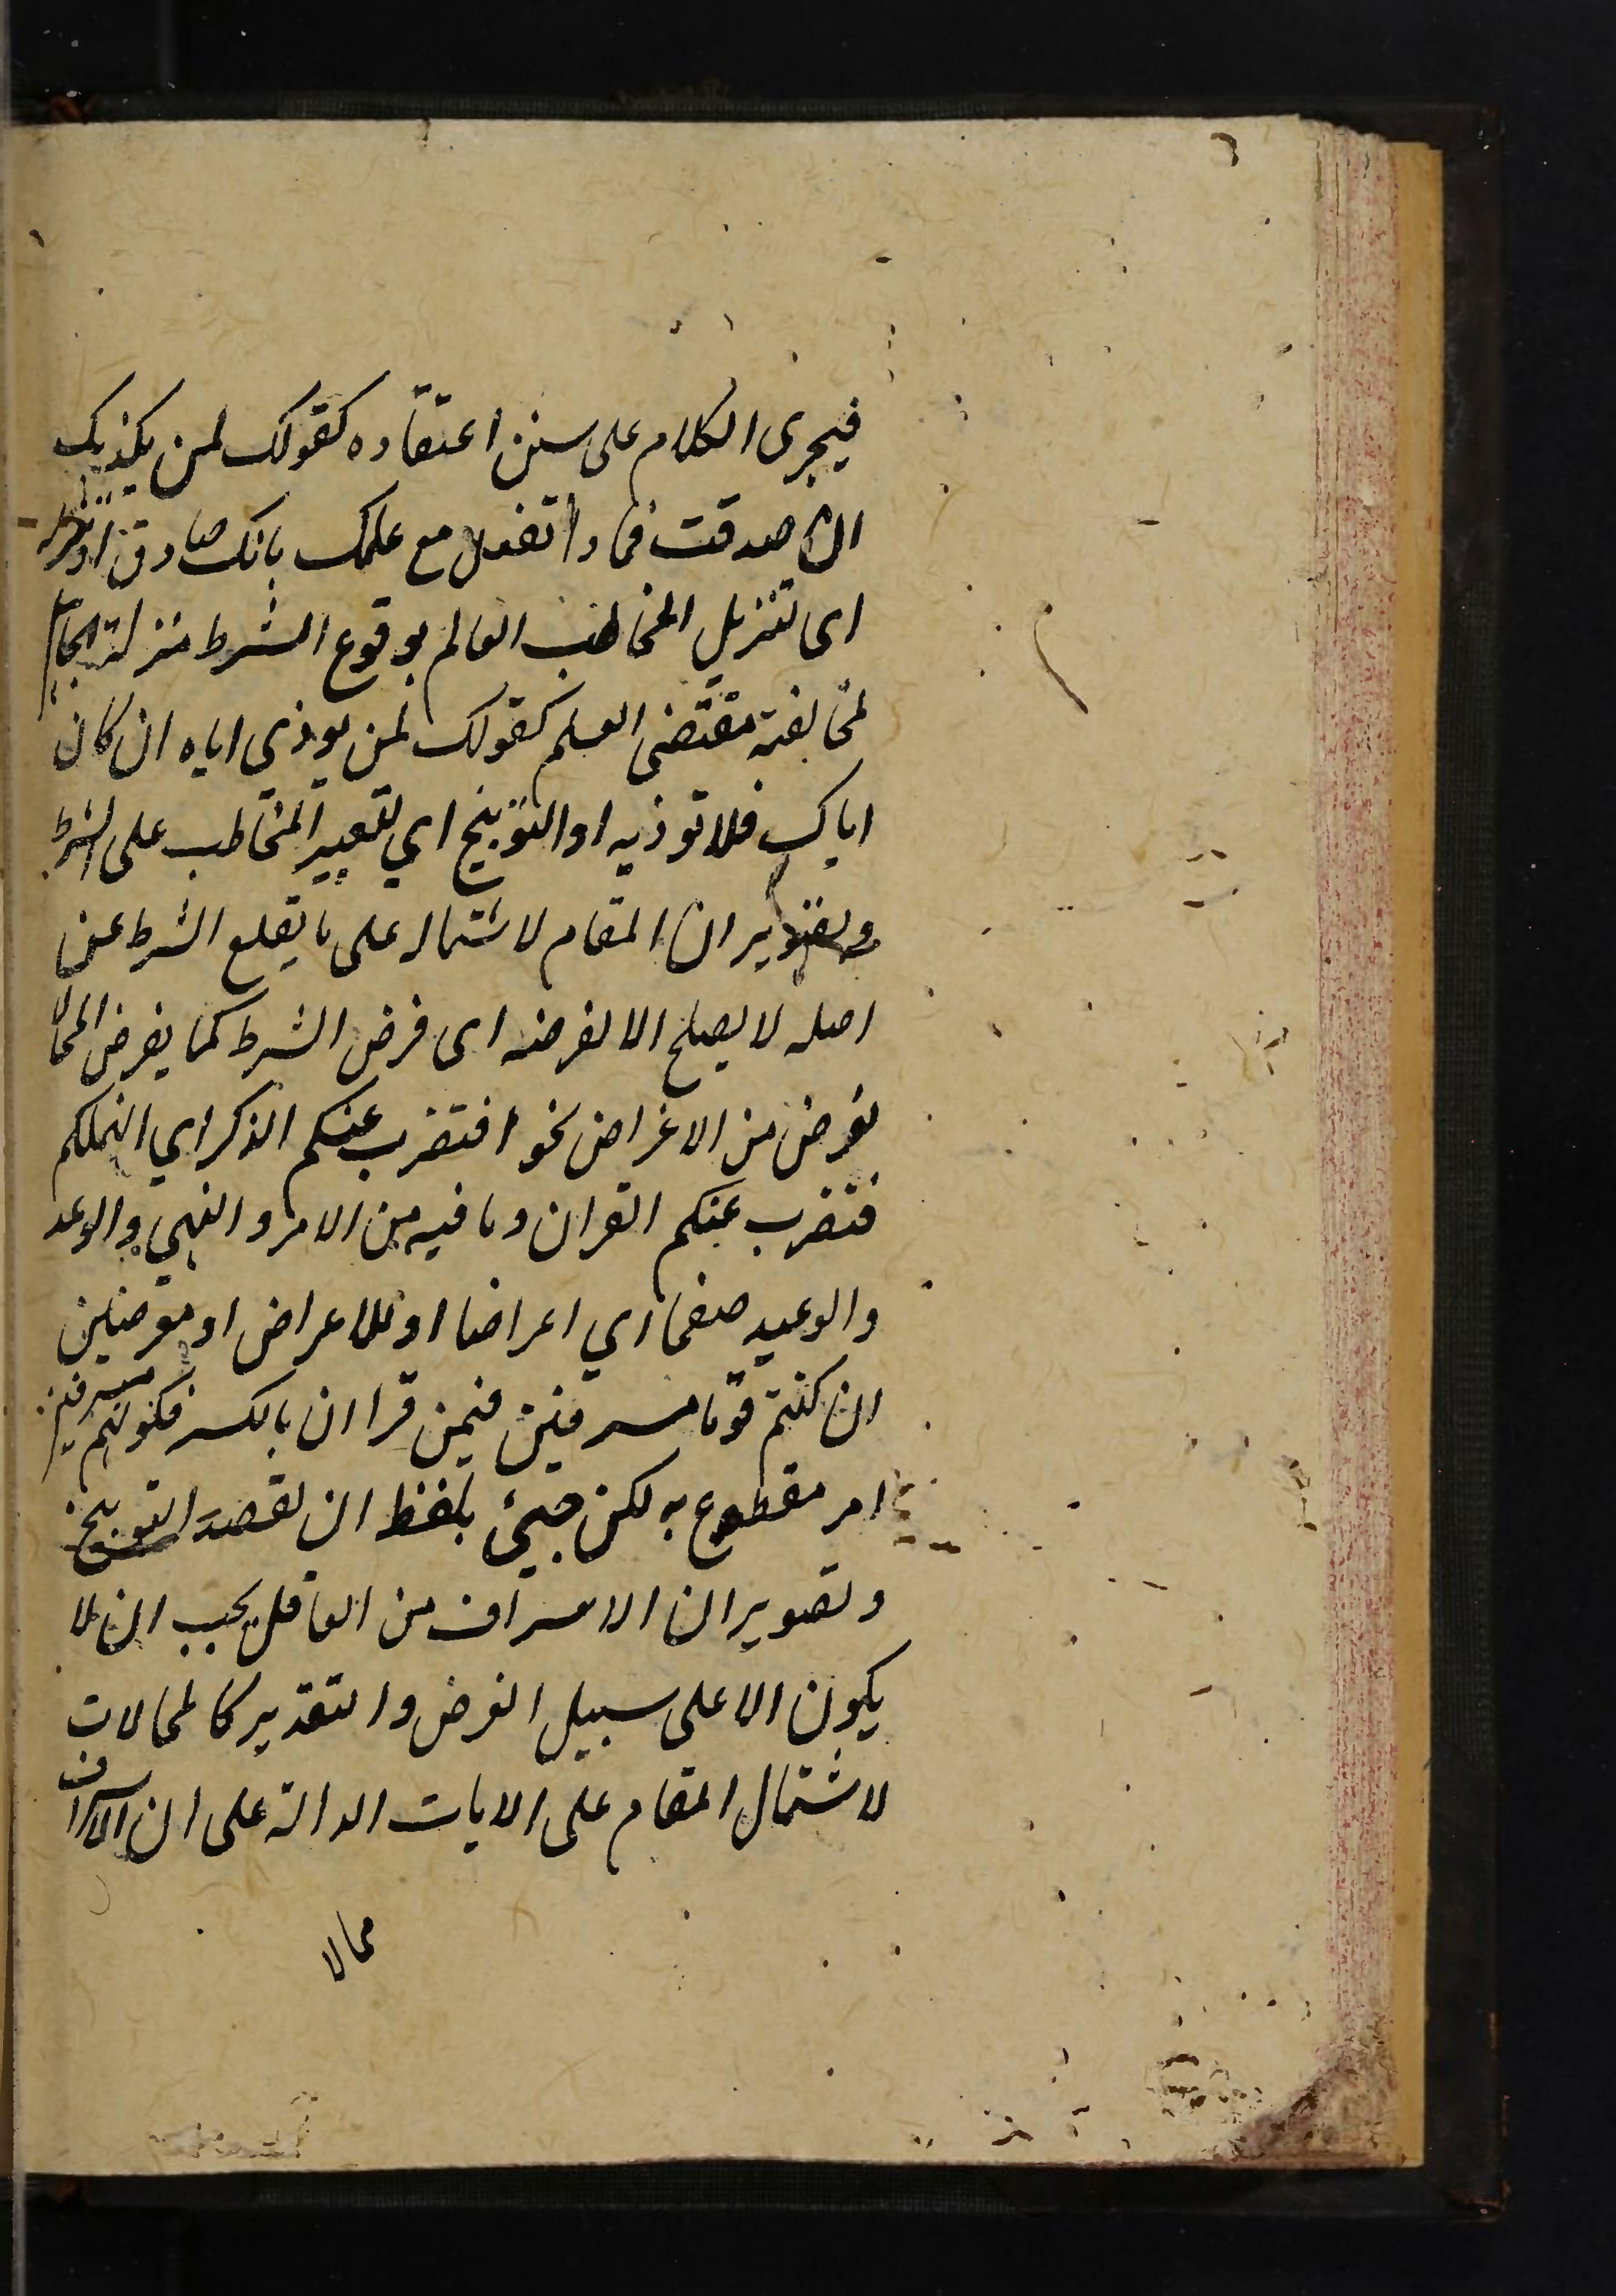 فيجرى الكلام على سنن اعتقاده كقولك لمن يكذبك
ان صدقت فماذا تفعل مع علمك بانك صادق او تنزيله
اى لتنزيل المخاطب العالم بوقوع الشرط منزلة الجاهل
لمخالفته مقتضى العلم كقولك لمن يوذي اباه ان كان
اباك فلا توذيه او التوبيخ اي لتعيير المخاطب على الشرط
وتصوير ان المقام لاشتماله على ما يقلع الشرط عن
اصله لا يصلح الا لفرضه اى فرض الشرط كما يفرض المحال
لغرض من الاغراض نحو افنضرب عنكم الذكر اي انهملكم
فنضرب عنكم القران وما فيه من الامر والنهي والوعد
والوعيد صفحا اي اعراضا او للاعراض او معرضين
ان كنتم قوما مسرفين فيمن قرا ان بالكسر فكونهم مسرفين
امر مقطوع به لكن جيئ بلفظ ان لقصد التوبيخ
وتصوير ان الاسراف من العاقل يجب ان لا
يكون الا على سبيل الفرض والتقدير كالمحالات
لاشتمال المقام على الايات الدالة على ان الاسراف